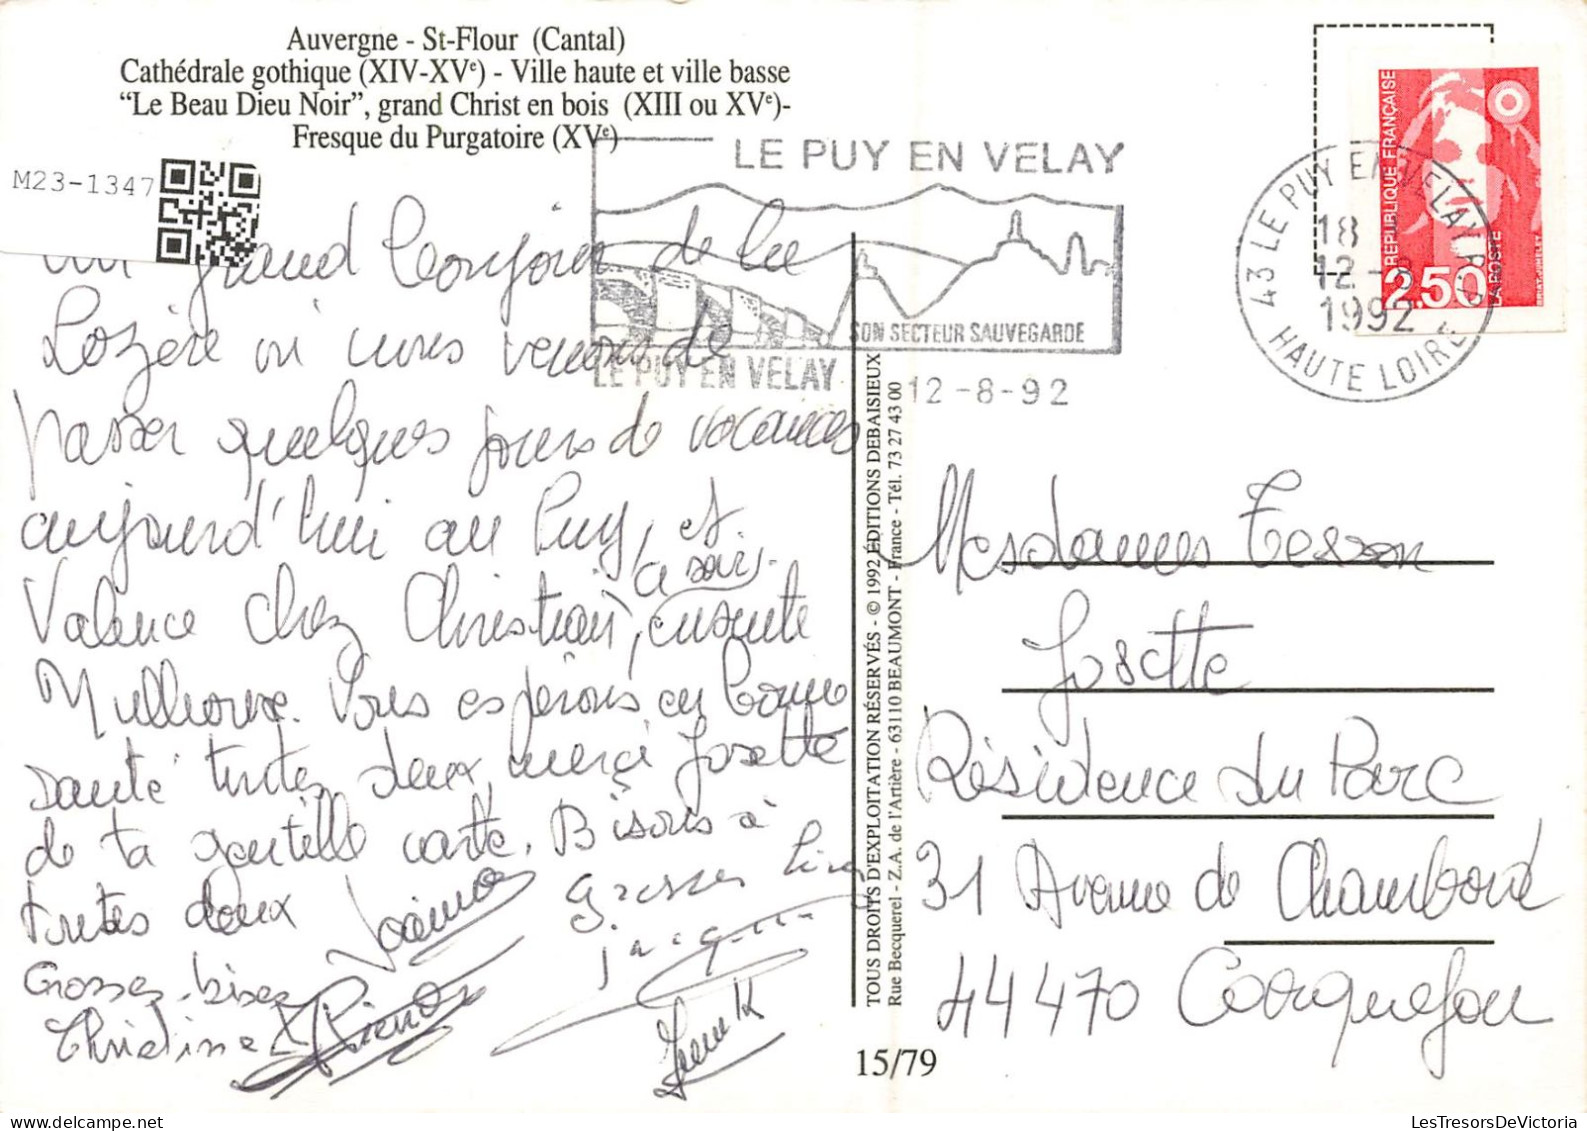 Auvergne - St-Flour (Cantal)
Cathédrale gothique (XIV-XVᵉ) - Ville haute et ville basse
“Le Beau Dieu Noir”, grand Christ en bois (XIII ou XVᵉ)-
Fresque du Purgatoire (XVᵉ)
M23-1347
LE PUY EN VELAY
SON SECTEUR SAUVEGARDE
LE PUY EN VELAY
12-8-92
43 LE PUY EN VELAY R.P.
18
12-8
1992
HAUTE LOIRE
REPUBLIQUE FRANÇAISE
2.50
LA POSTE
grand bonjour de la
Lozère où nous venons de
passer quelques jours de vacances
aujourd'hui au Puy, et
Valence chez Christian, ce soir, ensuite
Mulhouse. Vous espérons en bonne
santé toutes deux, merci Josette
de ta gentille carte. Bisous à
toutes deux
Grosses bises
Christine
grosses bises
TOUS DROITS D'EXPLOITATION RÉSERVÉS - © 1992 ÉDITIONS DEBAISIEUX
Rue Becquerel - Z.A. de l'Artière - 63110 BEAUMONT - France - Tél. 73 27 43 00
15/79
Mesdames Tesson
Josette
Résidence du Parc
31 Avenue de Chambord
44470 Carquefou
LesTresorsDeVictoria